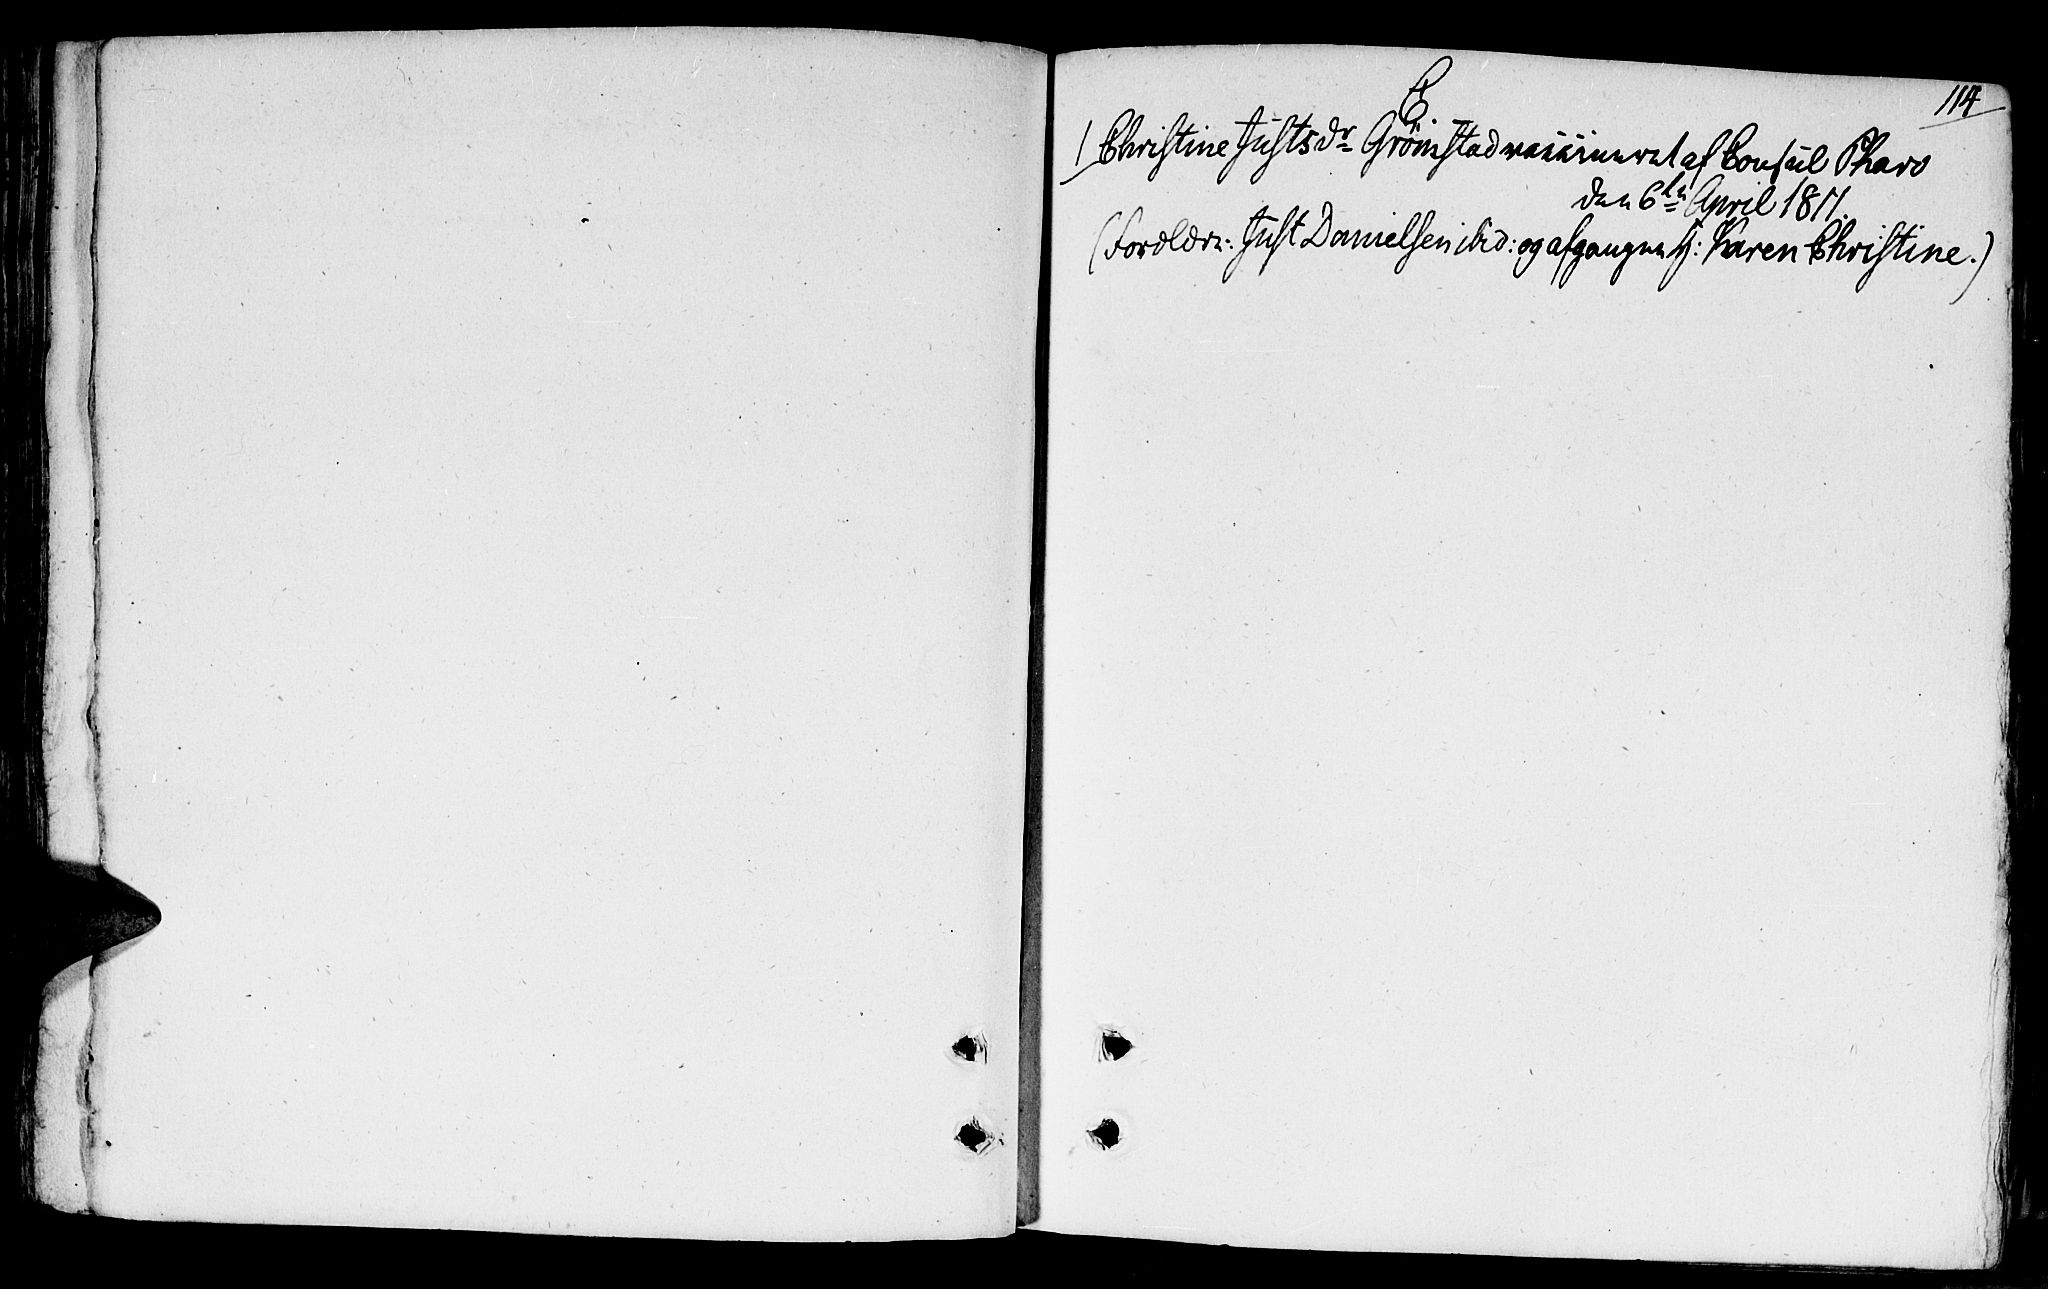 114
C
1 Christine Justsdr Grömstad vaccineret af Consul Pharo
den 6te April 1811.
(Forældre: Just Danielsen ibid: og afgangne H: Karen Christine.)